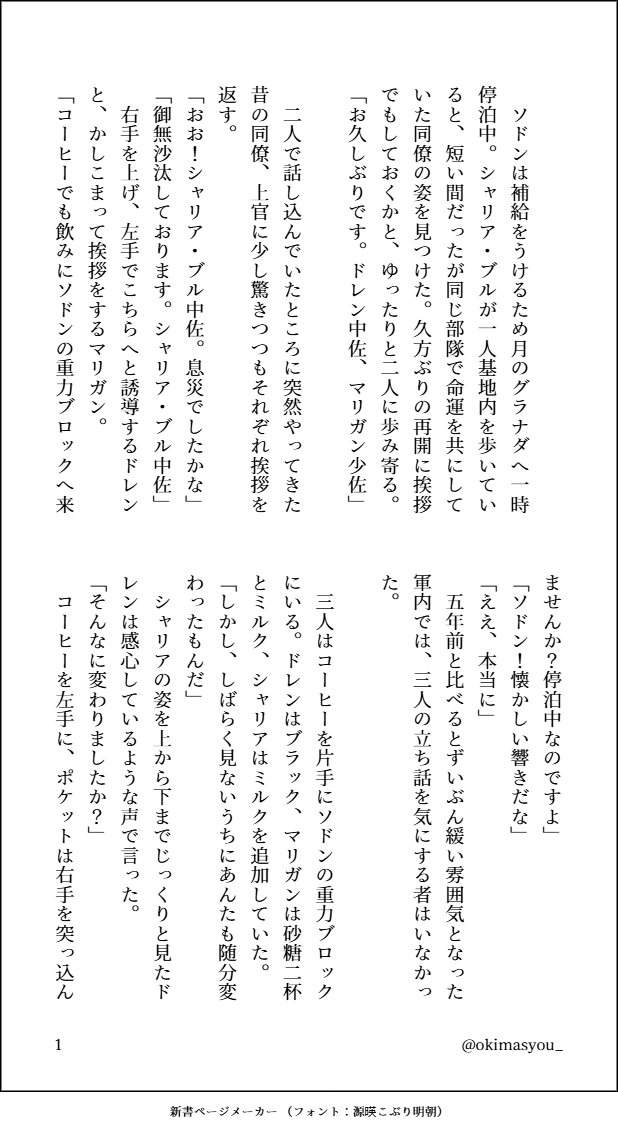 ソドンは補給をうけるため月のグラナダへ一時
停泊中。シャリア・ブルが一人基地内を歩いてい
ると、短い間だったが同じ部隊で命運を共にして
いた同僚の姿を見つけた。久方ぶりの再開に挨拶
でもしておくかと、ゆったりと二人に歩み寄る。
「お久しぶりです。ドレン中佐、マリガン少佐」
　二人で話し込んでいたところに突然やってきた
昔の同僚、上官に少し驚きつつもそれぞれ挨拶を
返す。
「おお！シャリア・ブル中佐。息災でしたかな」
「御無沙汰しております。シャリア・ブル中佐」
　右手を上げ、左手でこちらへと誘導するドレン
と、かしこまって挨拶をするマリガン。
「コーヒーでも飲みにソドンの重力ブロックへ来
ませんか？停泊中なのですよ」
「ソドン！懐かしい響きだな」
「ええ、本当に」
　五年前と比べるとずいぶん緩い雰囲気となった
軍内では、三人の立ち話を気にする者はいなかっ
た。
　三人はコーヒーを片手にソドンの重力ブロック
にいる。ドレンはブラック、マリガンは砂糖二杯
とミルク、シャリアはミルクを追加していた。
「しかし、しばらく見ないうちにあんたも随分変
わったもんだ」
　シャリアの姿を上から下までじっくりと見たド
レンは感心しているような声で言った。
「そんなに変わりましたか？」
　コーヒーを左手に、ポケットは右手を突っ込ん
1
@okimasyou_
新書ページメーカー（フォント：源暎こぶり明朝）